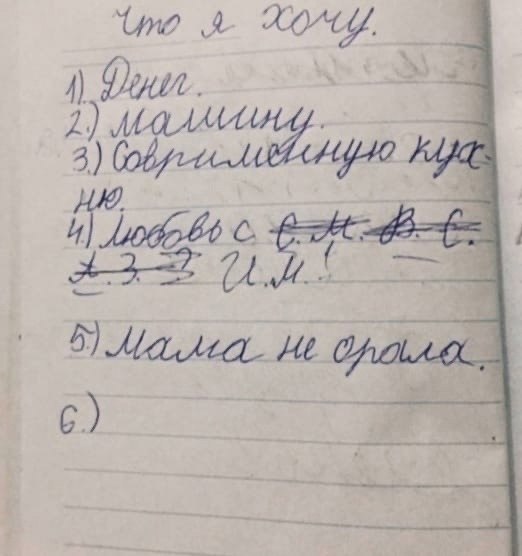 что я хочу.
1). Денег.
2.) машину.
3.) Соврименную кух-
ню.
4.) любовь с С. М. В. С.
А. З. З И.М.!
5.) Мама не орала.
6.)